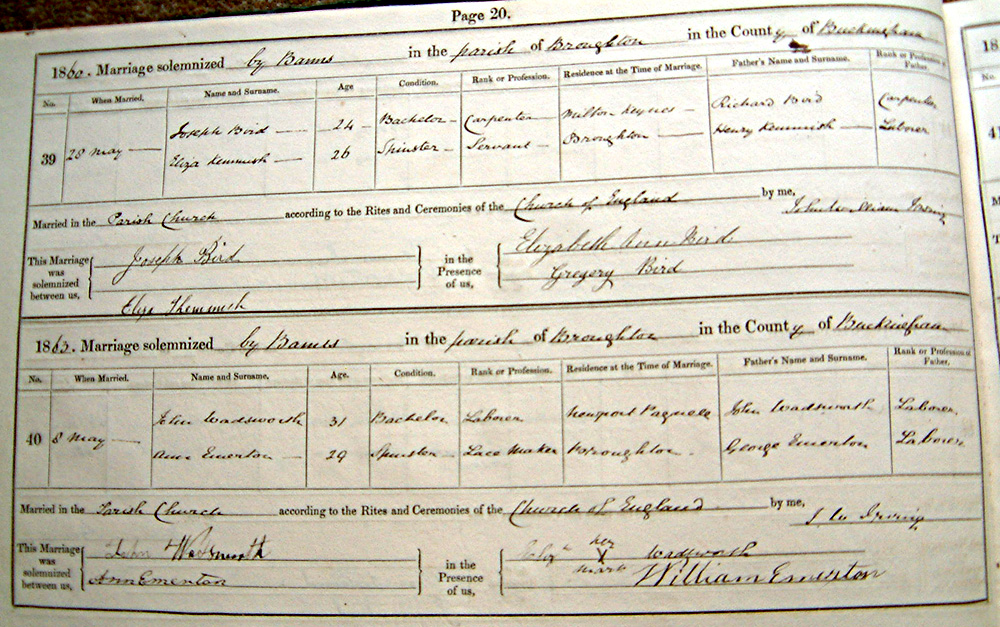 Page 20.
1860. Marriage solemnized by Banns in the parish of Broughton in the County of Buckingham
No. When Married. Name and Surname. Age Condition. Rank or Profession. Residence at the Time of Marriage. Father's Name and Surname. Rank or Profession of Father.
39 28 May Joseph Bird 24 Bachelor Carpenter Milton Keynes Richard Bird Carpenter
Eliza Kemmish 26 Spinster Servant Broughton Henry Kemmish Laborer
Married in the Parish Church according to the Rites and Ceremonies of the Church of England by me, John William Irving
This Marriage was solemnized between us, Joseph Bird in the Presence of us, Elizabeth Ann Bird
Eliza Gregory Bird
1863. Marriage solemnized by Banns in the parish of Broughton in the County of Buckingham
No. When Married. Name and Surname. Age. Condition. Rank or Profession. Residence at the Time of Marriage. Father's Name and Surname. Rank or Profession of Father.
40 8 May John Wadsworth 31 Bachelor Laborer Newport Pagnell John Wadsworth Laborer
Ann Emerton 29 Spinster Lace Maker Broughton George Emerton Laborer
Married in the Parish Church according to the Rites and Ceremonies of the Church of England by me, J W Irving
This Marriage was solemnized between us, John Wadsworth in the Presence of us, her X mark Wadsworth
Ann Emerton William Emerton
18
No.